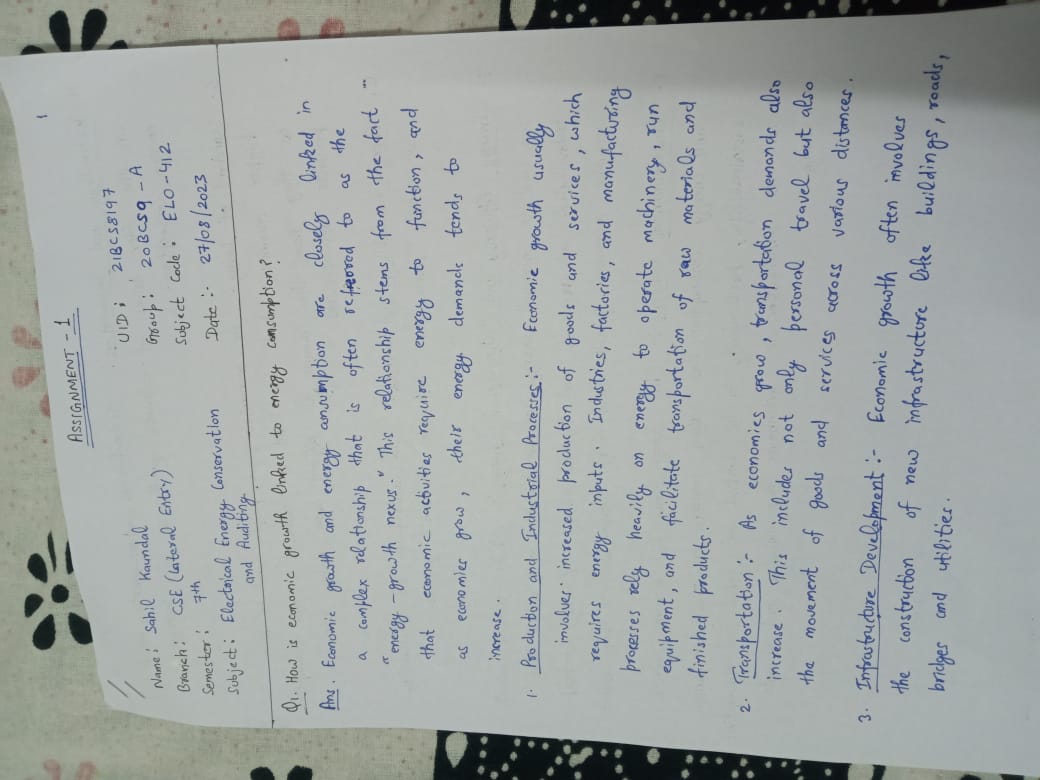 1
ASSIGNMENT - 1
Name: Sahil Kaundal
UID: 21BCS8197
Branch: CSE (Lateral Entry)
Group: 20BCS9 - A
Semester: 7th
Subject Code: ELO-412
Subject: Electrical Energy Conservation
and Auditing
Date :- 27/08/2023
Q1. How is economic growth linked to energy consumption?
Ans. Economic growth and energy consumption are closely linked in
a complex relationship that is often referred to as the
"energy-growth nexus." This relationship stems from the fact
that economic activities require energy to function, and
as economies grow, their energy demands tends to
increase.
1. Production and Industrial Processes :- Economic growth usually
involves increased production of goods and services, which
requires energy inputs. Industries, factories, and manufacturing
processes rely heavily on energy to operate machinery, run
equipment, and facilitate transportation of raw materials and
finished products.
2. Transportation :- As economies grow, transportation demands also
increase. This includes not only personal travel but also
the movement of goods and services across various distances.
3. Infrastructure Development :- Economic growth often involves
the construction of new infrastructure like buildings, roads,
bridges and utilities.